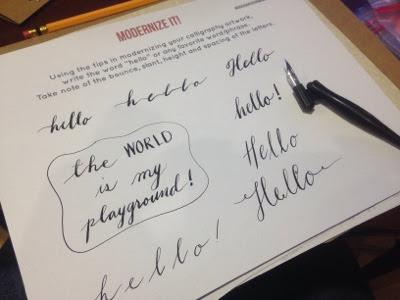 MODERNIZE IT!
Using the tips in modernizing your calligraphy artwork,
write the word "hello" or any favorite word/phrase.
Take note of the bounce, slant, height and spacing of the letters.
hello
hello
Hello
hello!
the WORLD
is my
playground!
Hello
Hello
hello!